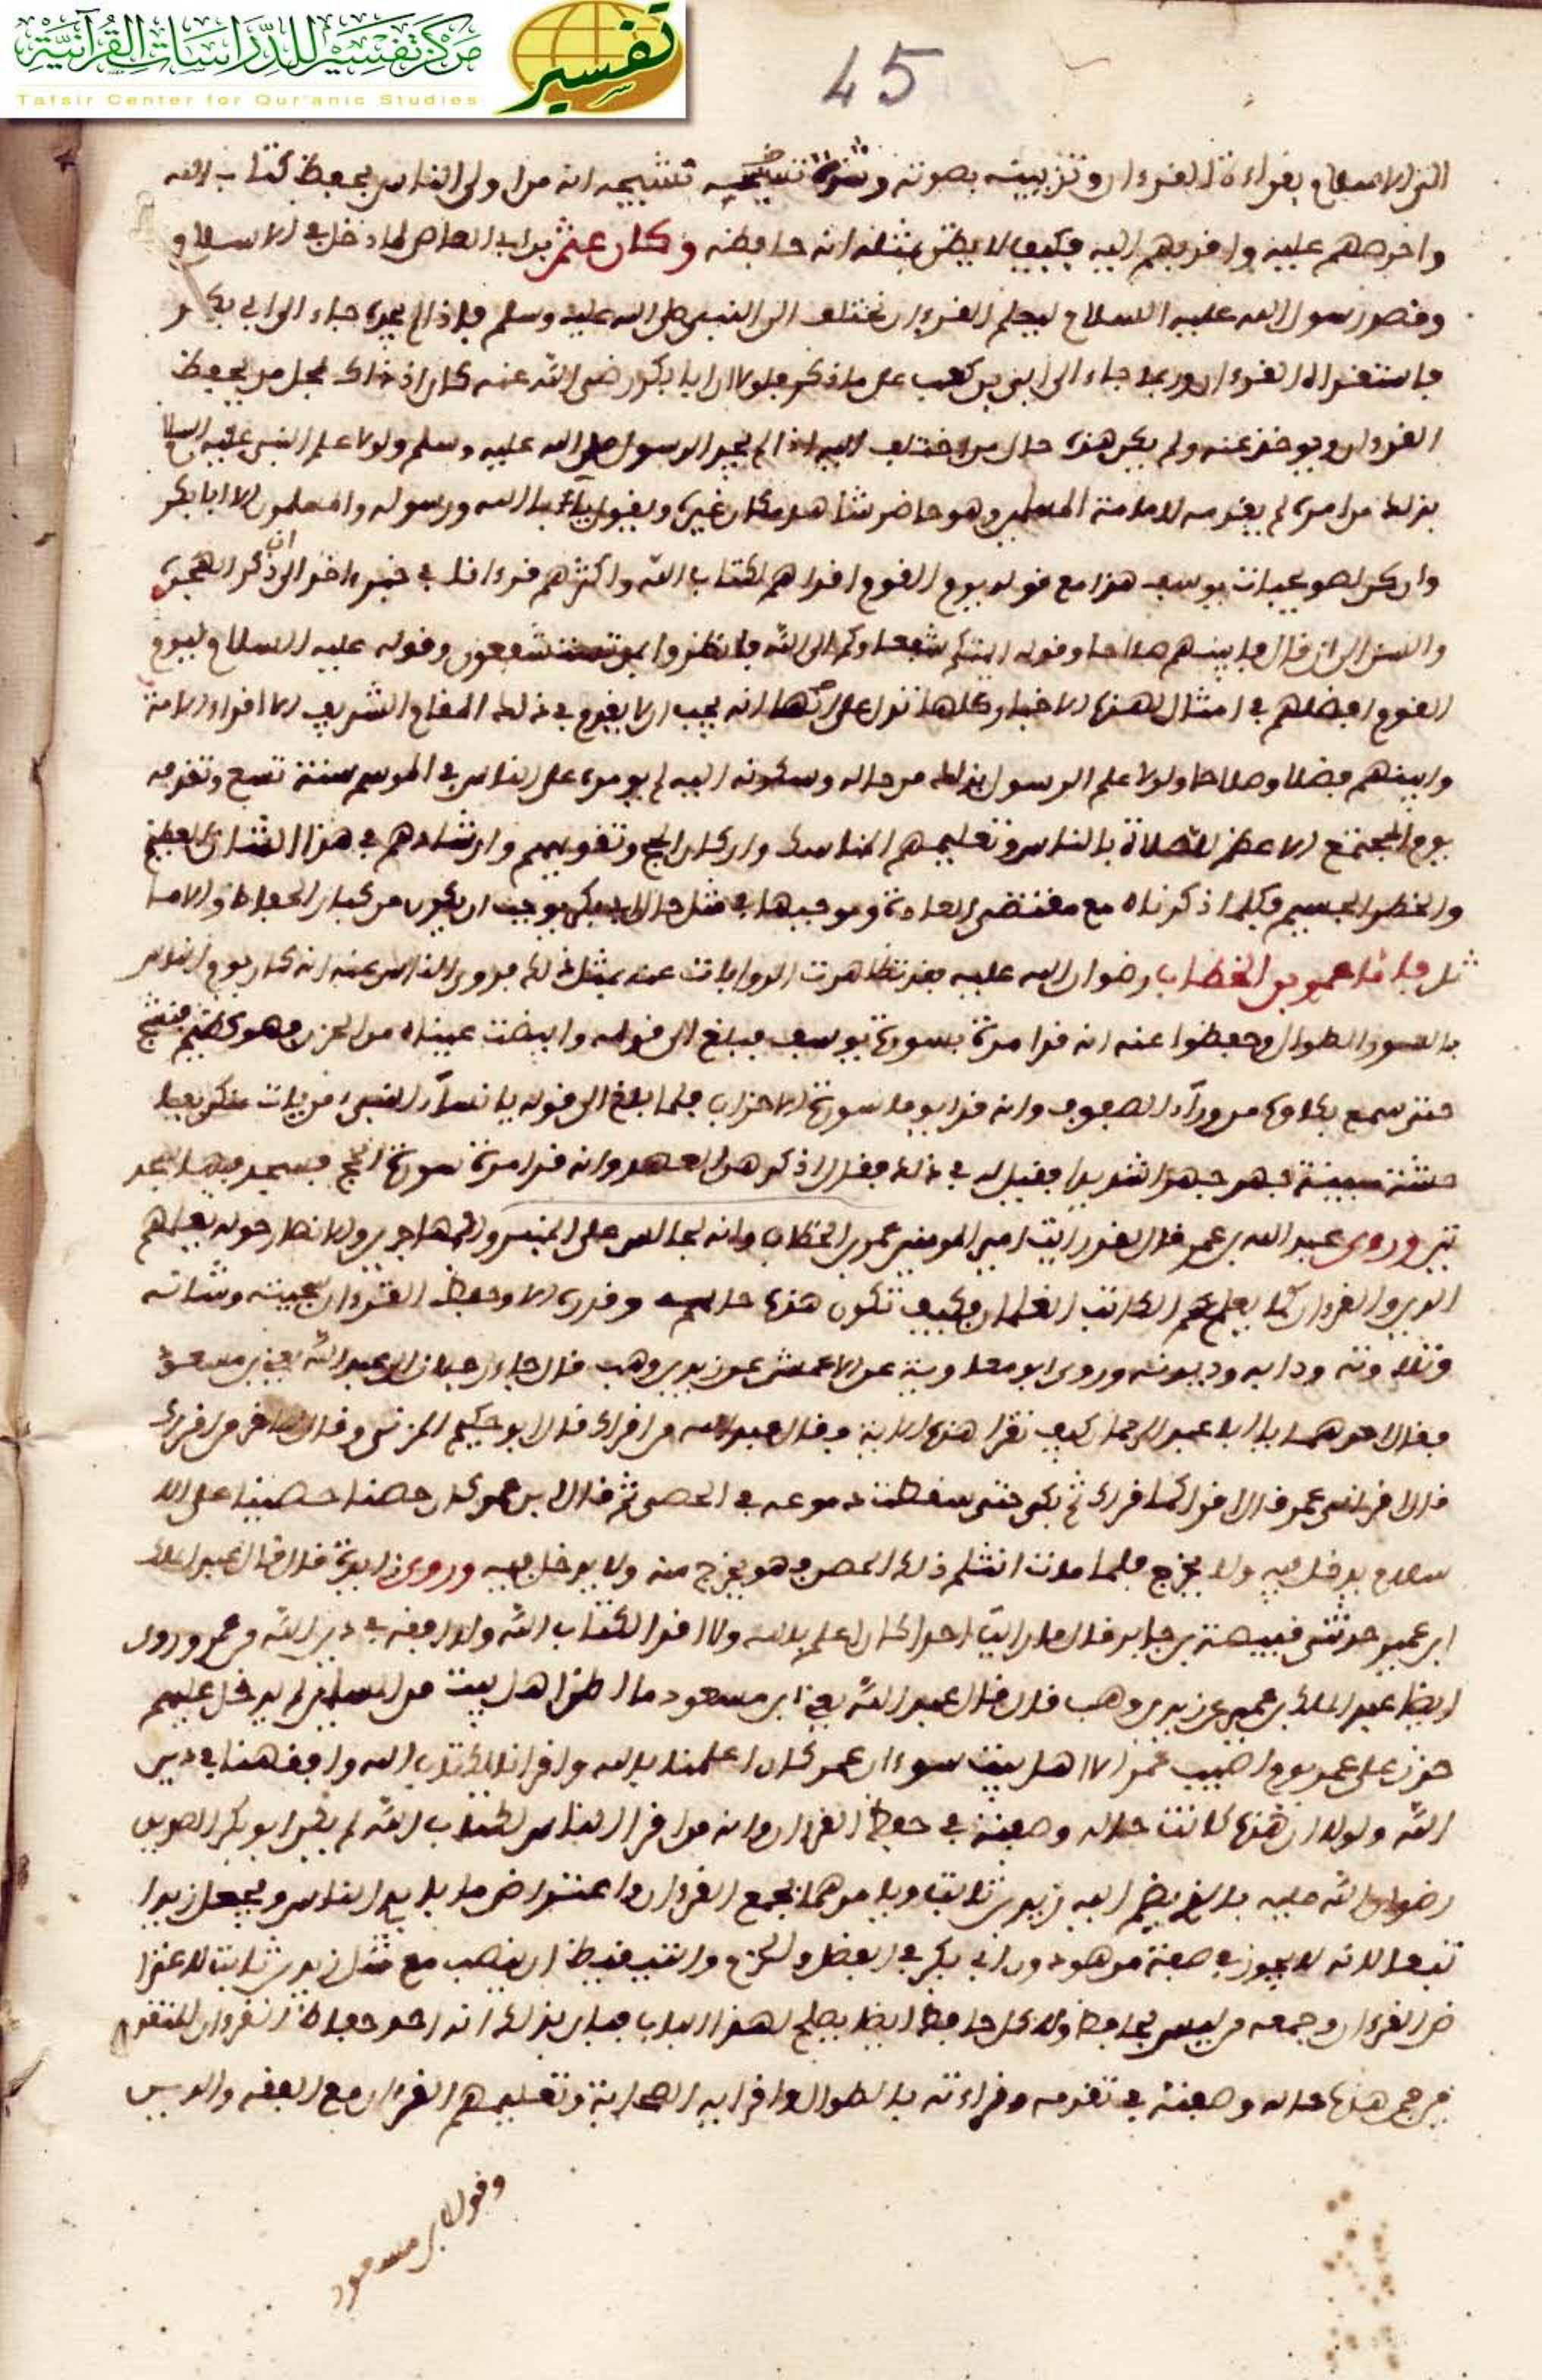 مركز تفسير للدراسات القرآنية
Tafsir Center for Qur'anic Studies
تفسير
45
الى الاسلام بقراءة القرءان وتزيينه بصوته وشدة تشيجه انه من اولى الناس بحفظ كتاب الله
واحرصهم عليه واقربهم اليه فكيف لا يظن بمثله انه حافظه وكان عثمن بن ابي العاص لما دخل في الاسلام و
وقصد رسول الله عليه السلام ليعلم القرءان يختلف الى النبي صلى الله عليه وسلم فاذا لم يجده جاء الى ابي بكر
فاستقراه القرءان وربما جاء الى ابي بن كعب على ما ذكر فلولا ان ابا بكر رضي الله عنه كان اذ ذاك بمحل من يحفظ
القرءان ويوخذ عنه ولم يكن هذه حال من اختلف اليه اذا لم يجد الرسول صلى الله عليه وسلم ولولا علم النبي عليه السلا
بذلك من امره لم يقدمه لامامة المسلمين وهو حاضر شاهد مكان غيره ويقول يابى الله ورسوله والمسلمون الا ابا بكر
وانكن لصويحبات يوسف هذا مع قوله يوم القوم اقراهم لكتاب الله واكثرهم قرءانا في خبر ءاخر الى ان ذكر الهجرة
والسن الى ان قال فابينهم صلاحا وقوله ايمتكم شفعاوكم الى الله فانظروا بمن تستشفعون وقوله عليه السلام ليوم
القوم افضلهم في امثال لهذه الاخبار وكلها تدل على انه يجب الا يقوم في ذلك المقام الشريف الا اقرا الامة
وابينهم فضلا وصلاحا ولولا علم الرسول بذلك من حاله وسكونه اليه لم يومره على الناس في الموسم سنة تسع وتقدمه
يوم المجتمع الاعظم للصلاة بالناس وتعليمهم المناسك واركان الحج وتقويمهم وارشادهم في هذا الشان العظيم
والخطر الجسيم فكلما ذكرناه مع مقتضى العادة وموجبها في مثل حال ابي بكر يوجب ان يكون من كبار الحفاظ والاما
ثل فاما عمر بن الخطاب رضوان الله عليه فقد تظاهرت الروايات عنه بمثل ذلك فروى الناس عنه انه كان يوم الناس
بالسور الطوال وحفظوا عنه انه قرا مرة بسورة يوسف فبلغ الى قوله وابيضت عيناه من الحزن فهو كظيم فنشج
حتى سمع بكاوه من ورآء الصفوف وانه قرا يوما سورة الاحزاب فلما بلغ الى قوله يا نسآء النبىء من يات منكن بفا
حشة مبينة فجهر جهرا شديدا فقيل له في ذلك فقال اذكرهن العهد وانه قرا مرة سورة الحج فسجد فيها سجد
تين وروى عبد الله بن عمر قال لقد رايت امير المومنين عمر بن الخطاب وانه لجالس على المنبر والمهاجرين والانصار حوله يعلمهم
الدين والقرءان كما يعلم الكاتب الغلمان فكيف تكون هذه حاله وقدره الا وحفظ القرءان سجيته وشانه
وتلاوته ودابه وديدنه وروى ابو معاوية عن الاعمش عن زيد بن وهب قال جاء رجلان الى عبد الله يعني بن مسعود
فقال احدهما يا ابا عبد الرحمان كيف تقرا هذه الاية فقال عبد الله من اقراك قال ابو حكيم المزني وقال للاخر من اقراك
قال اقراني عمر قال اقرا كما اقراك ثم بكى حتى سقطت دموعه في الحصى ثم قال ان عمر كان حصنا حصينا على الا
سلام يدخل فيه ولا يخرج فلما مات انثلم ذلك الحصن فهو يخرج منه ولا يدخل فيه وروى زايدة قال قال عبد الملك
ابن عمير حدثني قبيصة بن جابر قال ما رايت احدا كان اعلم بالله ولا اقرا لكتاب الله ولا افقه في دين الله من عمر وروى
ايضا عبد الملك بن عمير عن زيد بن وهب قال قال عبد الله يعني ابن مسعود ما اظن اهل بيت من المسلمين لم يدخل عليهم
حزن على عمر يوم اصيب عمر الا اهل بيت سوء ان عمر كان اعلمنا بالله واقرانا لكتاب الله وافقهنا في دين
الله ولولا ان هذه كانت حاله وصفته في حفظ القرءان وانه من اقرا الناس لكتاب الله لم يكن ابو بكر الصديق
رضوان الله عليه بالذي يضم اليه زيد بن ثابت ويامرهما بجمع القرءان واعتراض ما بايدي الناس ويجعل زيدا
تبعا لانه لا يجوز في صفة من هو دون ابي بكر في الفضل والحزم والتيقظ ان ينصب مع مثل زيد بن ثابت لاعترا
ض القرءان وجمعه من ليس بحافظ ولا كل حافظ ايضا يصلح لهذا الباب فبان بذلك انه احد حفاظ القرءان المتقد
من هذه حاله وصفته في تقدمه وقراءته بالطوال واقرايه الصحابة وتعليمهم القرءان مع الفقه والدين
وقول ابن مسعود